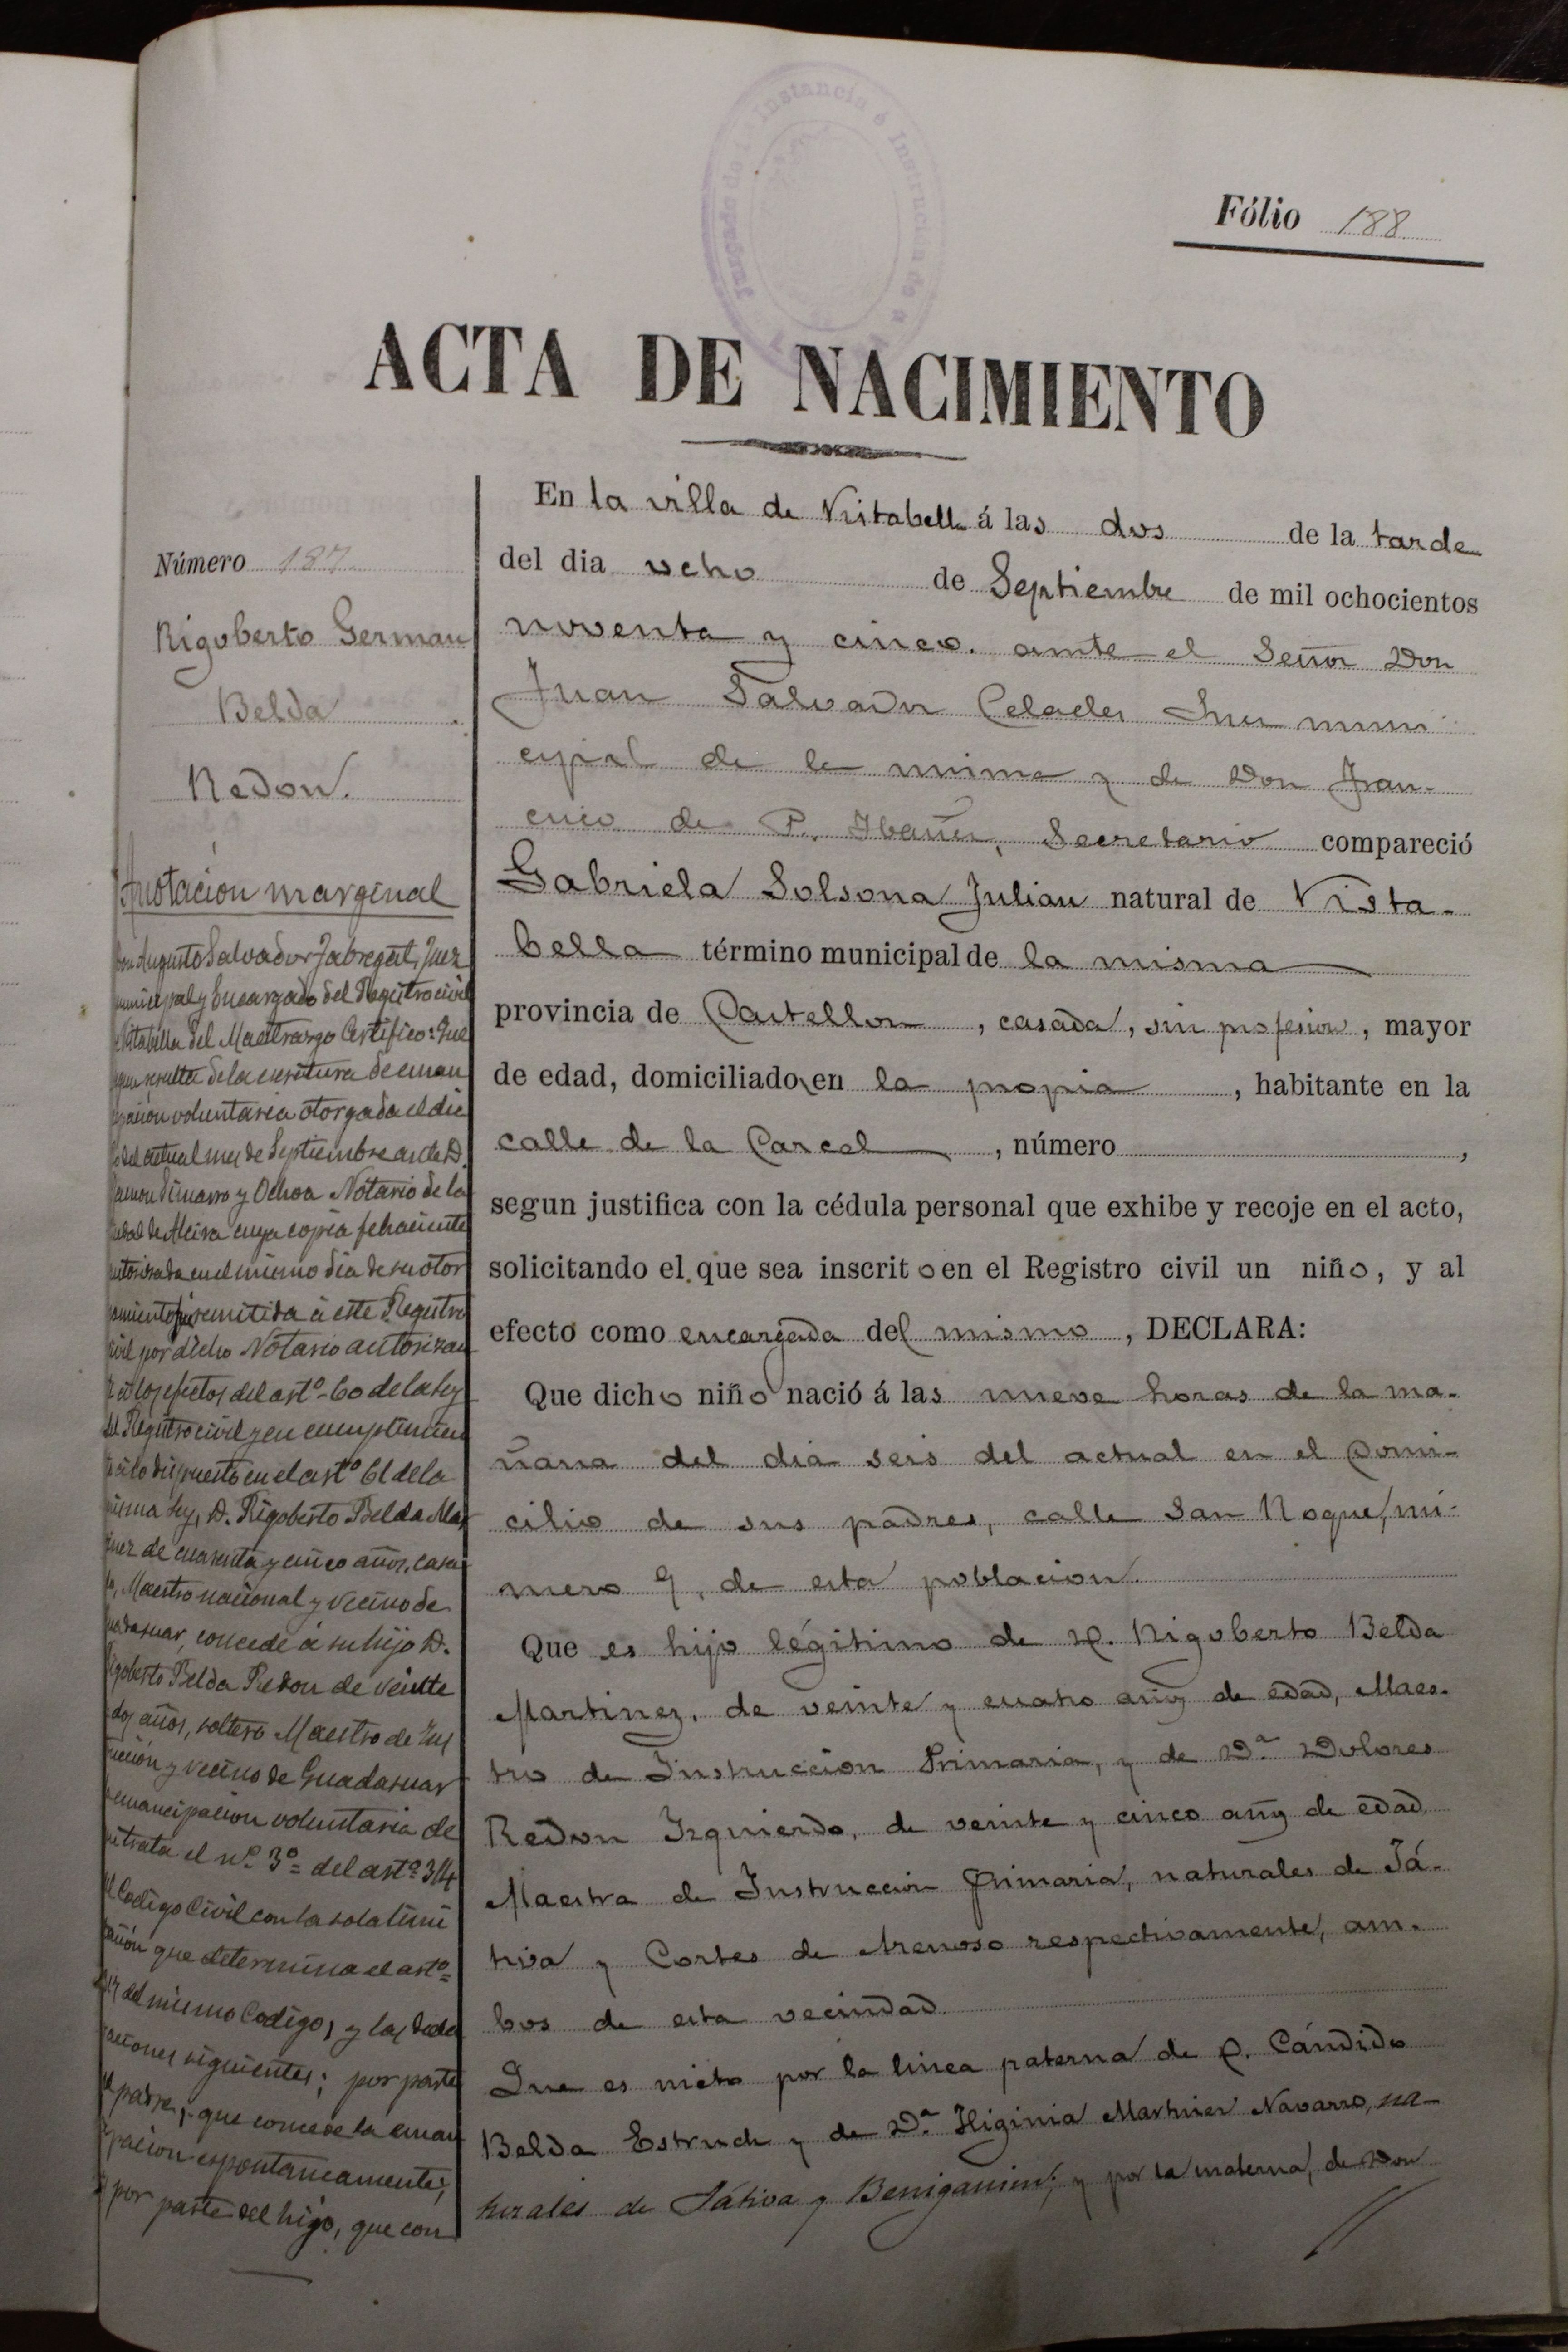 Juzgado de Instancia é Instrucción de
Fólio 188
ACTA DE NACIMIENTO
Número 187
Rigoberto German
Belda
Redon.
Anotación marginal
Don Augusto Salvador Fabregat, Juez
municipal y Encargado del Registro civil
Vistabella del Maestrazgo Certifico: Que
segun resulta de la escritura de eman
cipación voluntaria otorgada el dia
del actual mes de Septiembre ante D.
Ramon y Ochoa Notario de la
ciudad de Alcira cuya copia fehaciente
autorizada en el mismo dia de su otor
gamiento fué remitida á este Registro
civil por dicho Notario autorizan
á los efectos del artº 60 de la Ley
del Registro civil y en cumplimien
to á lo dispuesto en el artº 61 de la
misma Ley, D. Rigoberto Belda Mar
tinez de cuarenta y cinco años, casa
do, Maestro nacional y vecino de
Guadasuar, concede á su hijo D.
Rigoberto Belda Redon de veinte
dos años, soltero Maestro de Ins
trucción y vecino de Guadasuar
emancipacion voluntaria de
que trata el nº 3º del artº 314
del Codigo Civil con la sola limi
tación que determina el artº
317 del mismo Codigo, y las decla
raciones siguientes; por parte
del padre, que concede la eman
cipacion espontaneamente;
y por parte del hijo, que con
En la villa de Vistabella á las dos de la tarde
del dia ocho de Septiembre de mil ochocientos
noventa y cinco. ante el Señor Don
Juan Salvador Celades Juez muni
cipal de la misma y de Don Fran-
cisco de P. Ibañez, Secretario compareció
Gabriela Solsona Julian natural de Vista-
bella término municipal de la misma
provincia de Castellon, casada, sin profesion, mayor
de edad, domiciliado en la propia, habitante en la
calle de la Carcel, número ,
segun justifica con la cédula personal que exhibe y recoje en el acto,
solicitando el que sea inscrito en el Registro civil un niño, y al
efecto como encargada del mismo, DECLARA:
Que dicho niño nació á las nueve horas de la ma-
ñana del dia seis del actual en el domi-
cilio de sus padres, calle San Roque, nú-
mero 9, de esta poblacion.
Que es hijo légitimo de D. Rigoberto Belda
Martinez, de veinte y cuatro años de edad, Maes-
tro de Instruccion Primaria, y de Dª Dolores
Redon Izquierdo, de veinte y cinco años de edad
Maestra de Instruccion Primaria, naturales de Já-
tiva y Cortes de Arenoso respectivamente, am-
bos de esta vecindad.
Que es nieto por la linea paterna de D. Cándido
Belda Estruch y de Dª Higinia Martinez Navarro, na-
turales de Játiva y Beniganim; y por la materna, de Don